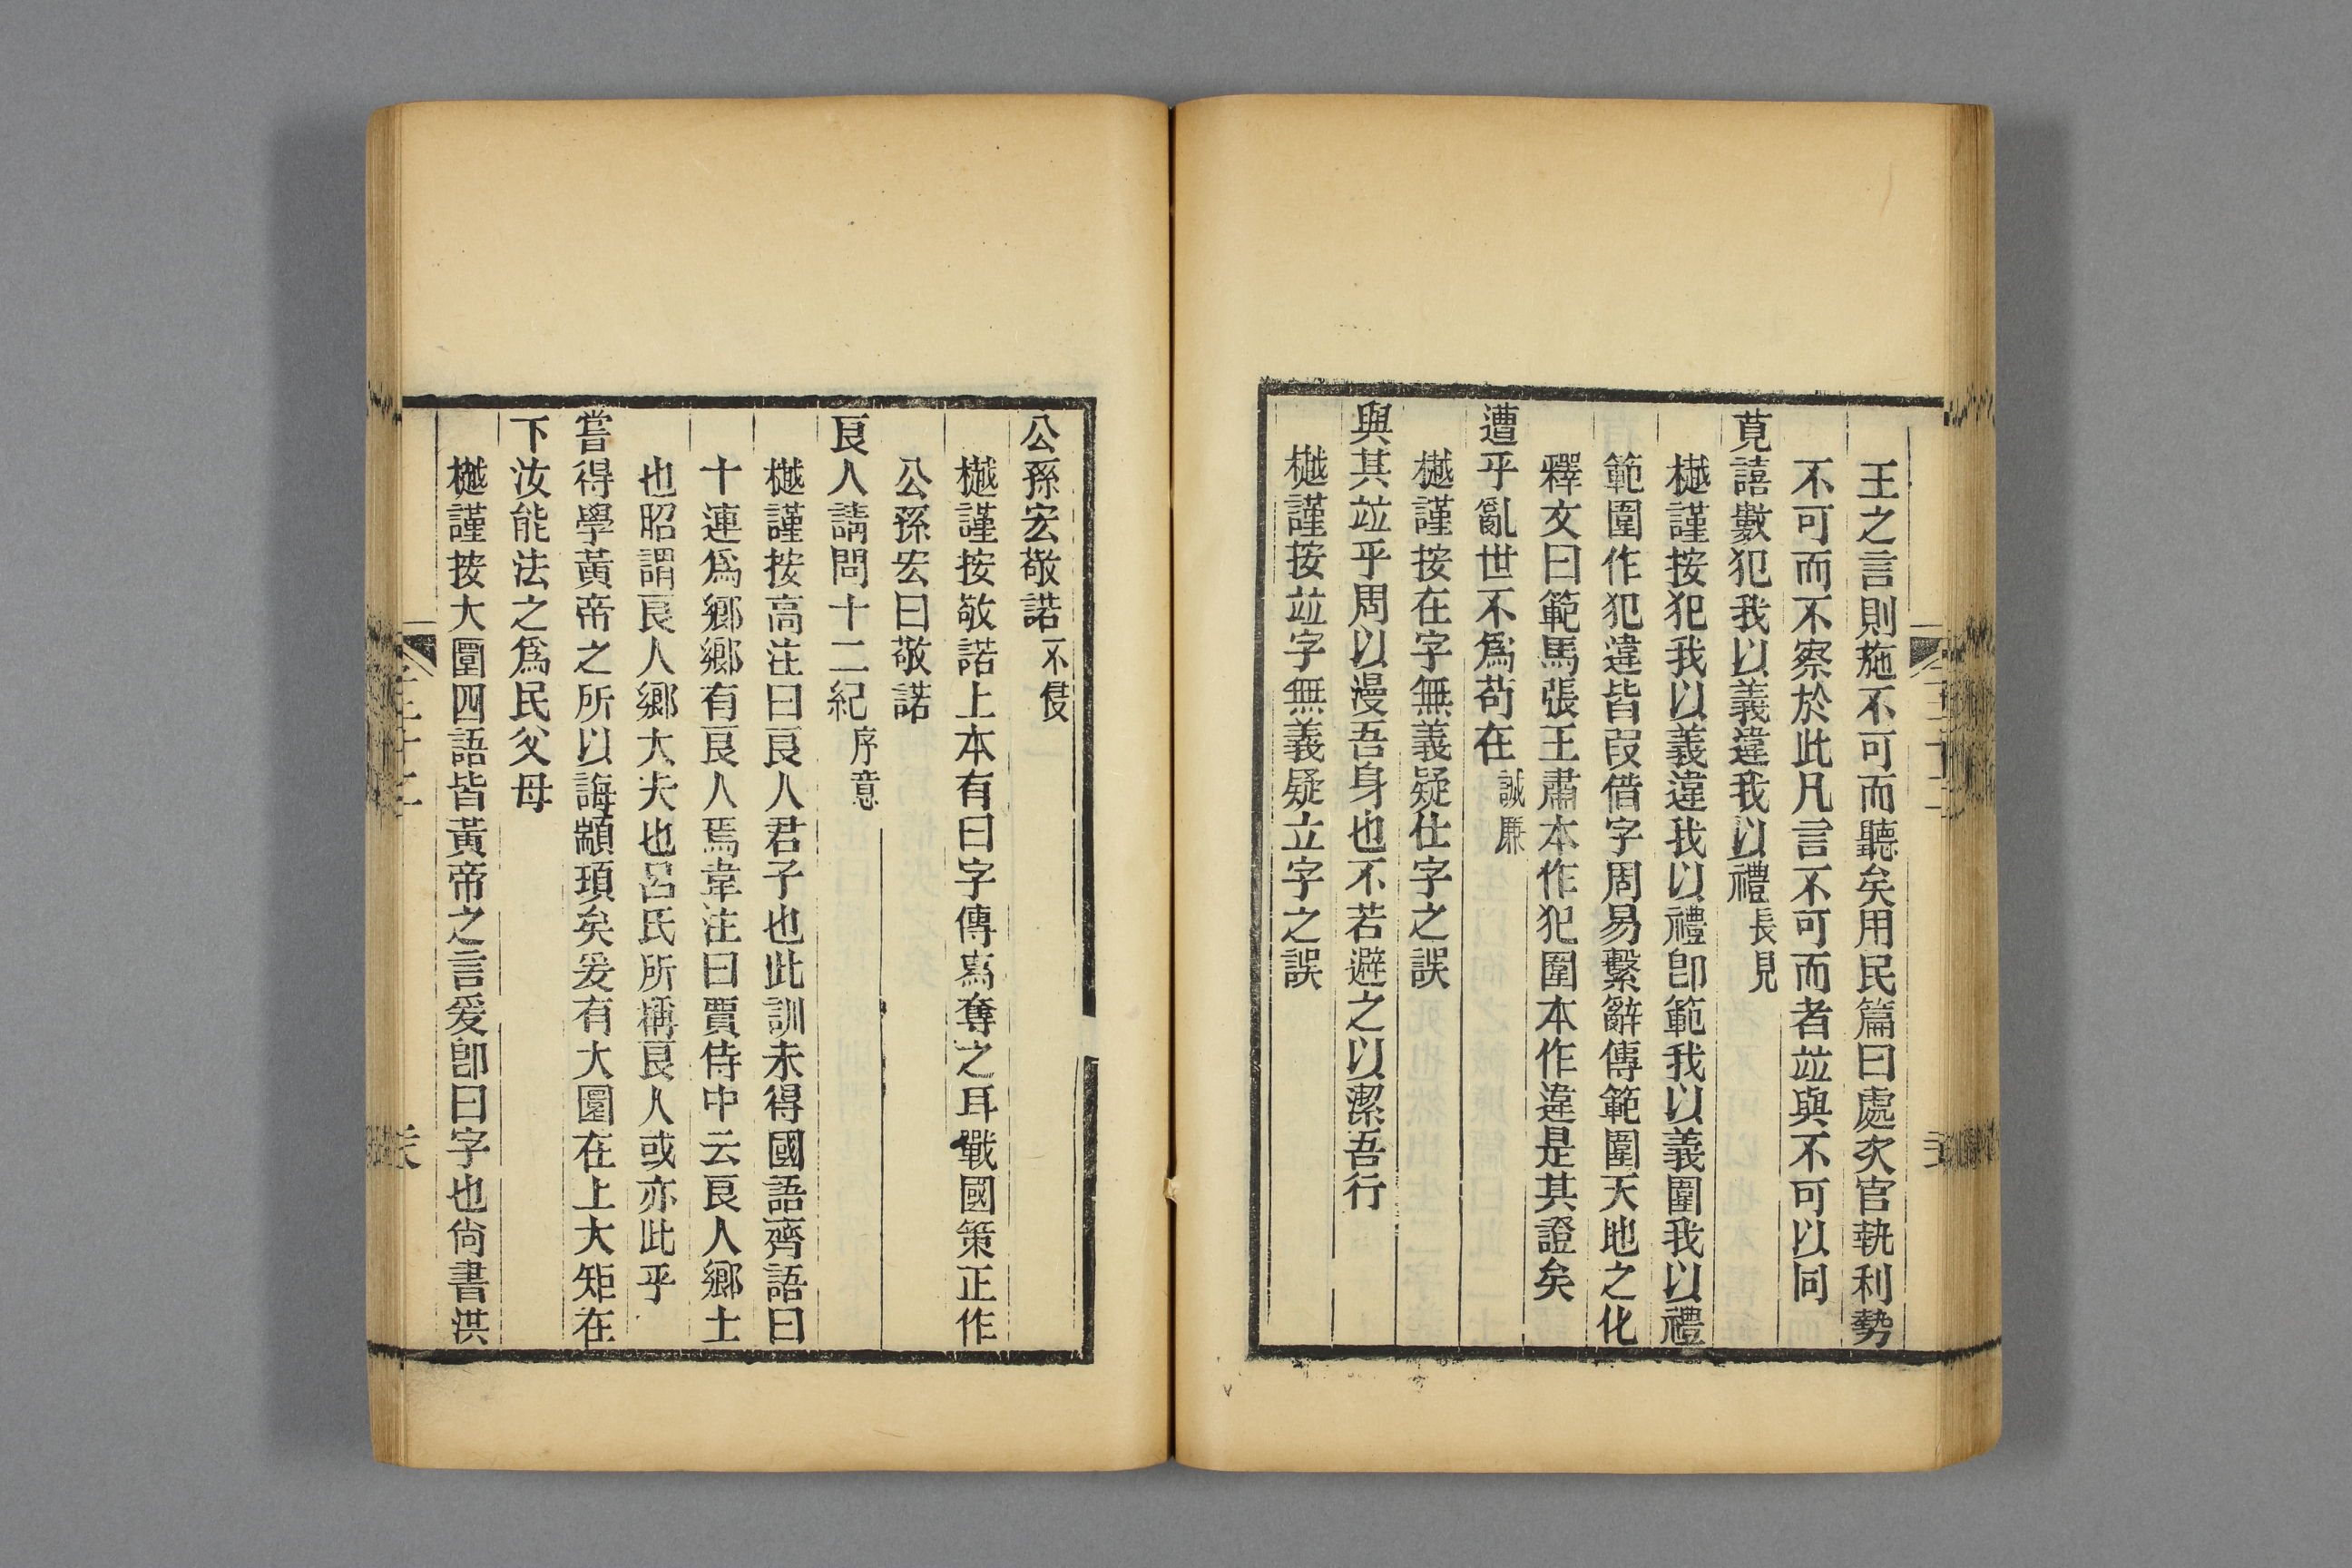 王之言則施不可而聽矣用民篇曰處次官執利勢
不可而不察於此凡言不可而者竝與不可以同
莧譆數犯我以義違我以禮長見
樾謹按犯我以義違我以禮卽範我以義圍我以禮
範圍作犯違皆叚借字周易繫辭傳範圍天地之化
釋文曰範馬張王肅本作犯圍本作違是其證矣
遭乎亂世不爲苟在誠廉
樾謹按在字無義疑仕字之誤
與其竝乎周以漫吾身也不若避之以潔吾行
樾謹按竝字無義疑立字之誤
公孫宏敬諾不侵
樾謹按敬諾上本有曰字傳寫奪之耳戰國策正作
公孫宏曰敬諾
良人請問十二紀序意
樾謹按高注曰良人君子也此訓未得國語齊語曰
十連爲鄉鄉有良人焉韋注曰賈侍中云良人鄉士
也昭謂良人鄉大夫也呂氏所稱良人或亦此乎
嘗得學黃帝之所以誨顓頊矣爰有大圜在上大矩在
下汝能法之爲民父母
樾謹按大圜四語皆黃帝之言爰卽曰字也尙書洪